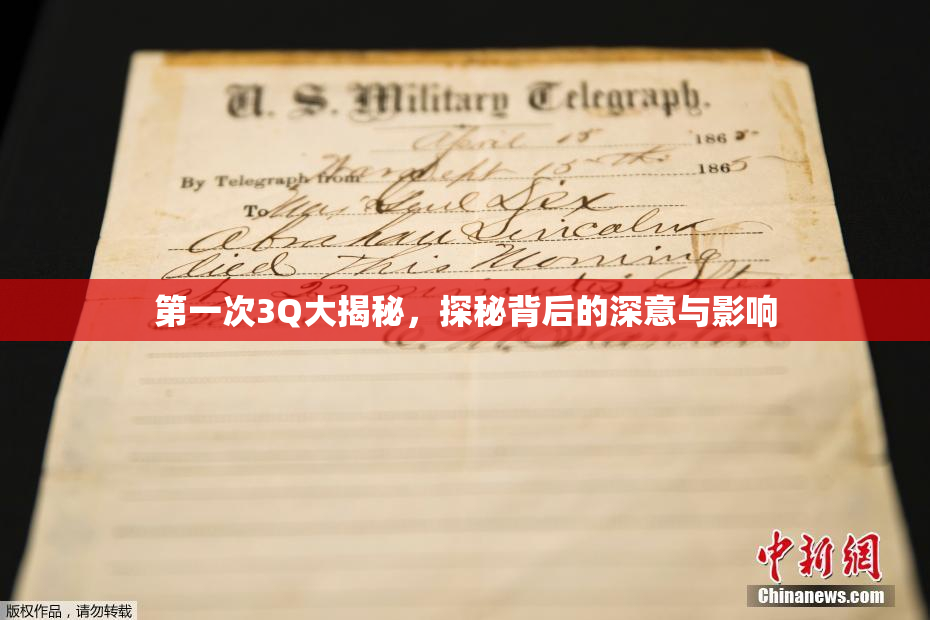 U. S. Military Telegraph.
April 15 1865
By Telegraph from War Dept 15th 1865
To Maj Genl Dix
Abraham Lincoln
died This Morning
at 22 minutes after
第一次3Q大揭秘，探秘背后的深意与影响
E. M. Stanton
中新网
Chinanews.com
版权作品，请勿转载